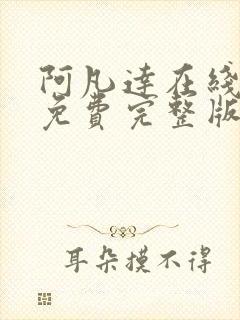 阿凡達在綫
免費完整版
耳朵摸不得